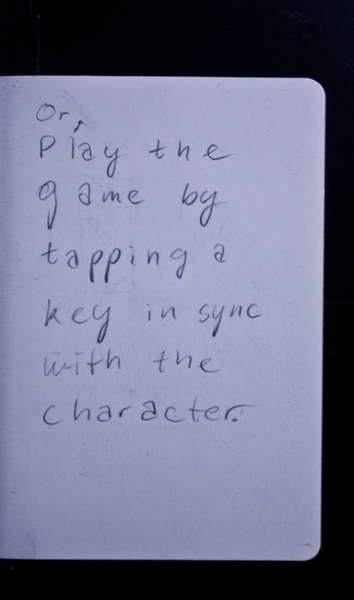 Or,
Play the
game by
tapping a
key in sync
with the
character.